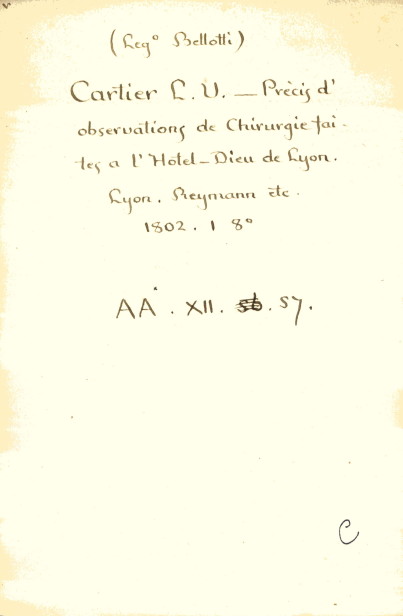 (Leg° Bellotti)
Cartier L. V. — Précis d'
observations de Chirurgie fai-
tes a l'Hôtel-Dieu de Lyon.
Lyon. Reymann etc.
1802. 1 8°
AA. XII. 56. 57.
C